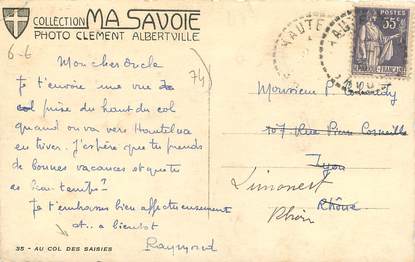 COLLECTION MA SAVOIE
PHOTO CLEMENT ALBERTVILLE
6-6
74
Mon cher Oncle
Je t'envoie une vue de
col prise du haut du col
quand on va vers Hauteluce
en hiver. J'espère que tu prends
de bonnes vacances et que tu
as beau temps?
Je t'embrasse bien affectueusement
et.. a bientot
Raymond
35 - AU COL DES SAISIES
HAUTE
35c
POSTES
Monsieur P.
107 Rue Pierre Corneille
Lyon
Limonest
Rhône
Rhône